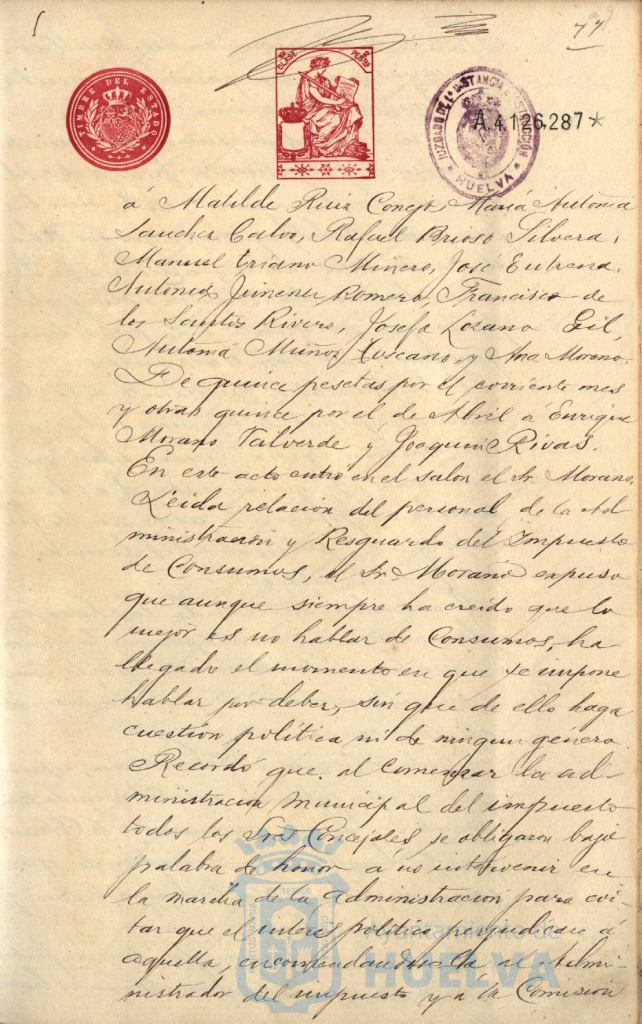 77
TIMBRE DEL ESTADO
CLASE
PESETAS
JUZGADO DE 1ª INSTANCIA E INSTRUCCIÓN
HUELVA
A.4.126.287*
á Matilde Ruiz Concep, María Antonia
Sanchez Calvo, Rafael Brioso Silvera,
Manuel Triano Minero, José Eutrena,
Antonia Jimenez Romero, Francisco de
los Santos Rivero, Josefa Lozano Gil,
Antonia Muñoz Toscano, y Ana Moreno.
De quince pesetas por el corriente mes
y otras quince por el de Abril á Enrique
Morano Valverde y Joaquin Rivas.
En este acto entró en el salon el Sr. Morano.
Leida relación del personal de la Ad
ministración y Resguardo del Impuesto
de Consumos, el Sr. Morano expuso
que aunque siempre ha creido que lo
mejor es no hablar de Consumos, ha
llegado el momento en que se impone
hablar por deber, sin que de ello haga
cuestión política ni de ningun género.
Recordó que al comenzar la ad-
ministración municipal del impuesto
todos los Sres Concejales se obligaron bajo
palabra de honor a no intervenir en
la marcha de la administración para evi-
tar que el interés político perjudicase á
aquella, encomendandosela al Admi-
nistrador del impuesto y á la Comisión
Ayuntamiento de
HUELVA